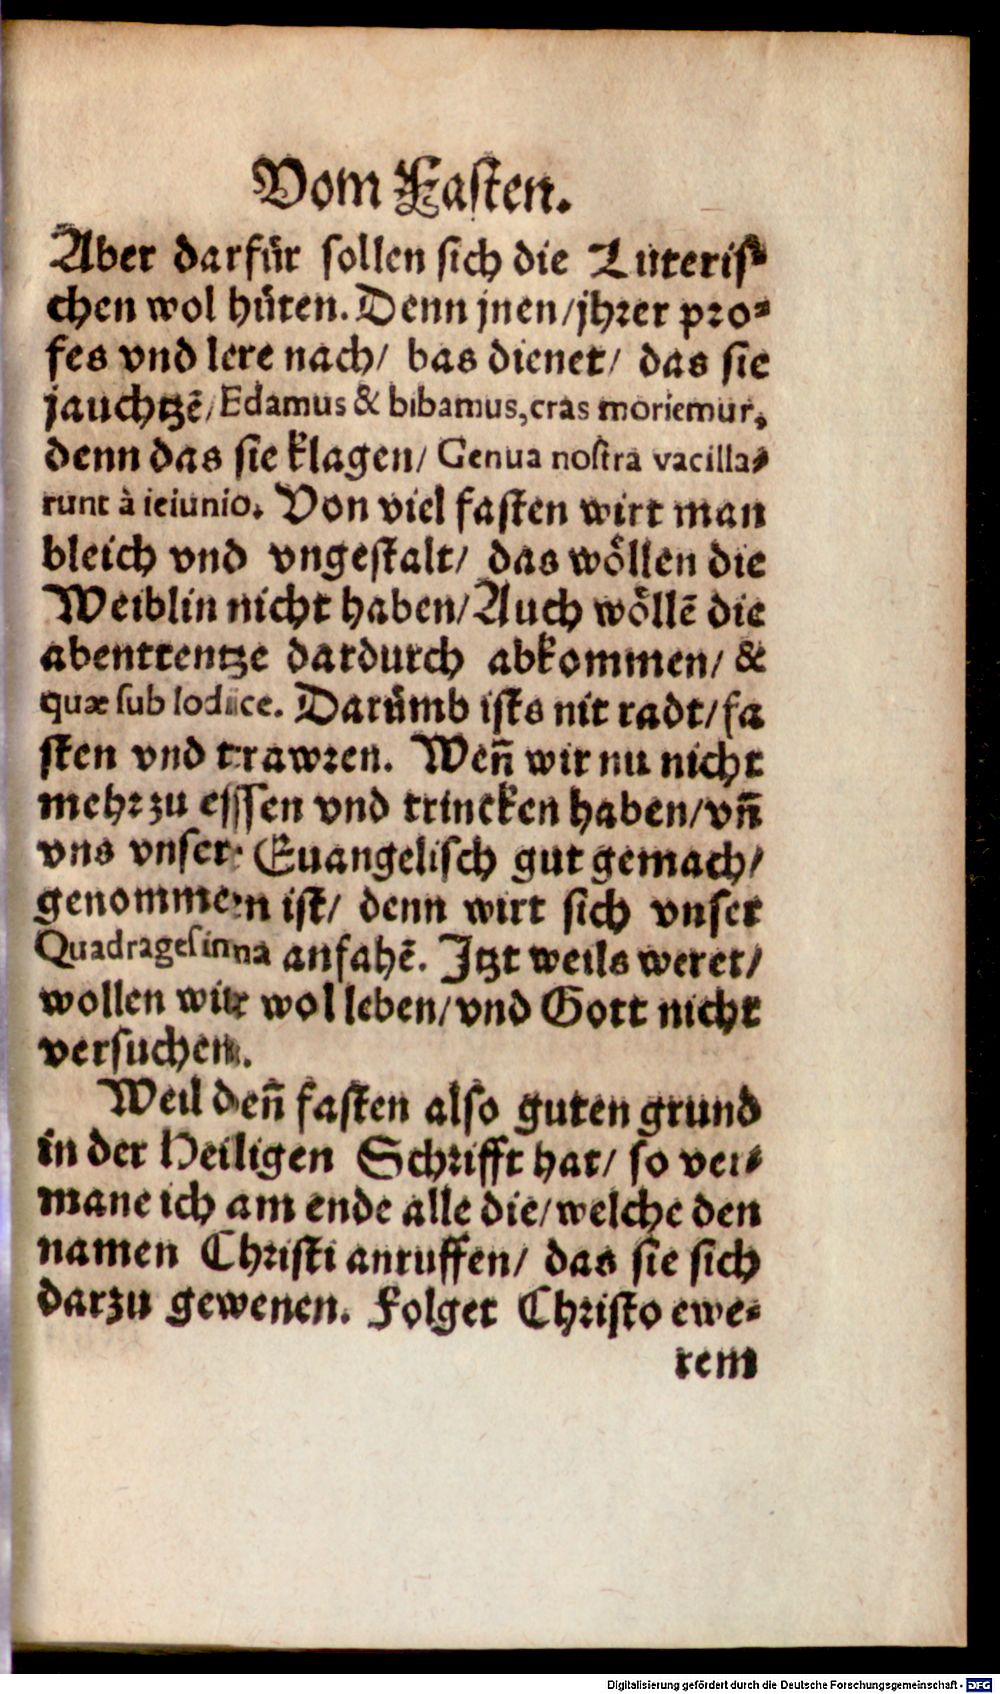 Vom Fasten.
Aber darfür sollen sich die Luteris-
chen wol hüten. Denn jnen/jhrer pro-
fes vnd lere nach/ bas dienet/ das sie
jauchtzẽ/Edamus & bibamus,cras moriemur,
denn das sie klagen/ Genua nostra vacilla-
runt à ieiunio. Von viel fasten wirt man
bleich vnd vngestalt/ das wöllen die
Weiblin nicht haben/Auch wöllẽ die
abenttentze dardurch abkommen/ &
quæ sub lodice. Darümb ists nit radt/fa
sten vnd trawren. Weñ wir nu nicht
mehr zu essen vnd trincken haben/vñ
vns vnser Euangelisch gut gemach/
genommen ist/ denn wirt sich vnser
Quadragesima anfahẽ. Jtzt weils weret/
wollen wir wol leben/vnd Gott nicht
versuchen.
Weil deñ fasten also guten grund
in der Heiligen Schrifft hat/ so ver-
mane ich am ende alle die/welche den
namen Christi anruffen/ das sie sich
darzu gewenen. Folget Christo ewe-
rem
Digitalisierung gefördert durch die Deutsche Forschungsgemeinschaft - DFG